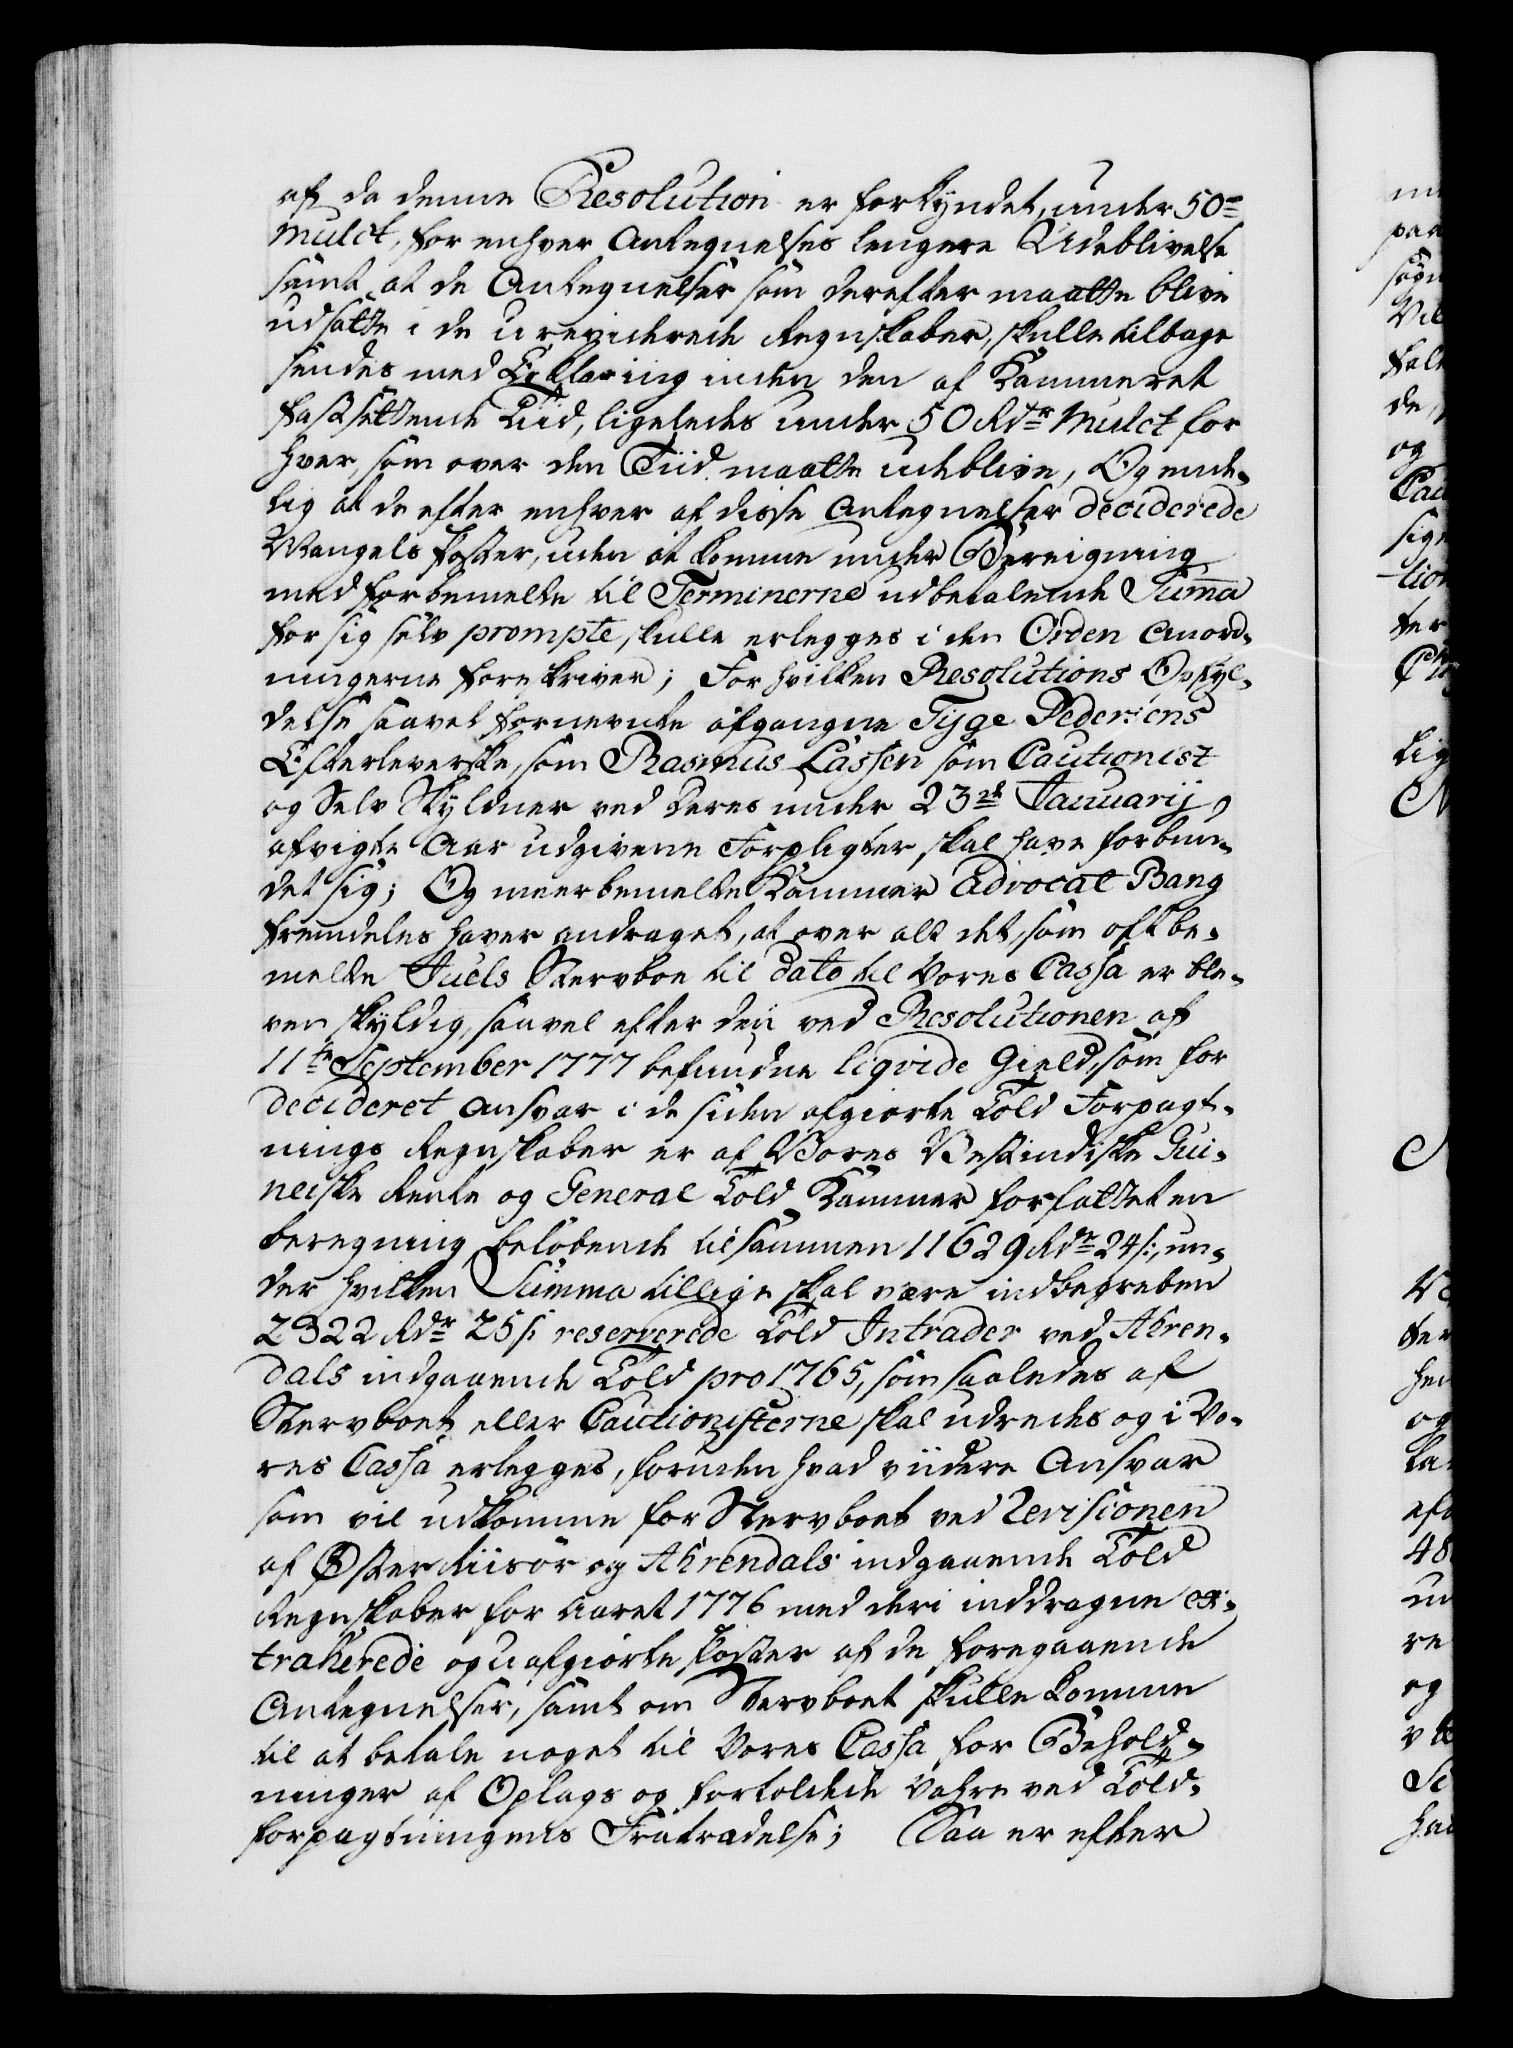 af da denne Resolution er forkyndet, under 50 r
Mulct, for enhver Antegnelses lengere Udeblivelse
samt at de Antegnelser som derefter maatte blive
udsatte i de ureviderede Regnskaber, skulle tilbage
sendes med Erklæring inden den af Kammeret
fastsættende Tiid, ligeledes under 50 Rdr Mulct for
hver, som over den Tiid maatte udeblive, Og ende-
lig at de efter enhver af disse Antegnelser deciderede
Mangels Poster, uden at komme under Bereigning
med forbemelte til Terminerne udbetalende Summa
for sig selv prompte skulle erlegges i den Orden Anord-
ningerne foreskriver; For hvilken Resolutions Opfyl-
delse saavel fornevnte afgangne Tyge Pedersens
Efterleverske, som Rasmus Lassen som Cautionist
og Selv Skyldner ved deres under 23de Januarij
afvigte Aar udgivene Forpligter, skal have forbun-
det sig; Og meerbemelte Kammer Advocat Bang
fremdeles haver andraget, at over alt det, som oftbe-
melte Juels Stervboe til dato til Vores Cassa er ble-
ven skyldig, saavel efter den ved Resolutionen af
11te September 1777 befundne liqvide Gield, som for
decideret Ansvar i de siden afgiorte Told Forpagt-
nings Regnskaber er af Vores Vestindiske Gui-
neiske Rente og General Told Kammer forfattet en
beregning, beløbende tilsammen 11629 Rdr 24 s:, un-
der hvilken Summa tillige skal være indbegreben
2322 Rdr 25 s: reserverede Told Intrader ved Ahren-
dals indgaaende Told pro 1765, som saaledes af
Stervboet eller Cautionisterne skal udredes og i Vo-
res Cassa erlegges, foruden hvad viidere Ansvar
som vil udkomme for Stervboet ved Revisionen
af Øster Riisør og Ahrendals indgaaende Told
Regnskaber for Aaret 1776 med deri inddragne ex-
traherede og uafgiorte Poster af de foregaaende
Antegnelser, samt om Stervboet skulle komme
til at betale noget til Vores Cassa for Behold-
ninger af Oplags og fortoldede Vahre ved Told-
forpagtningens Fratrædelse; Saa er efter